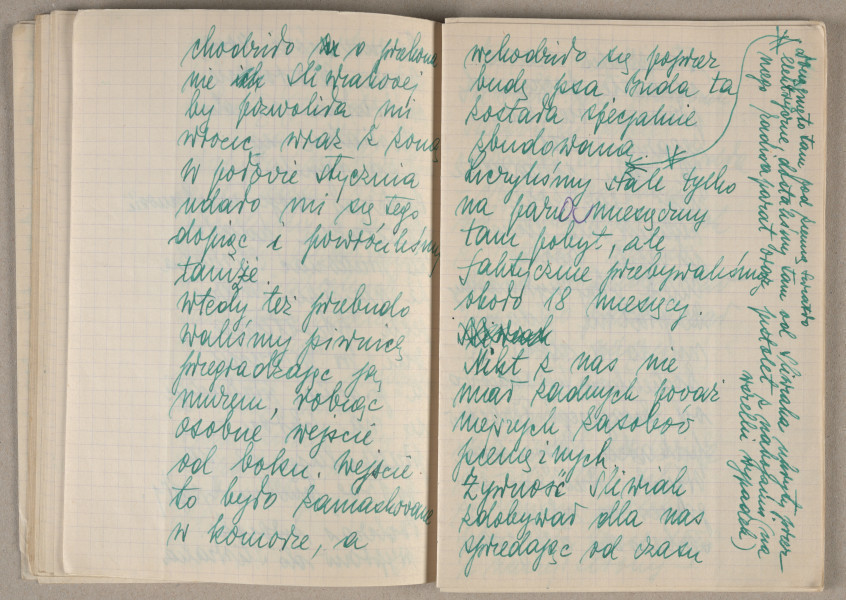 chodziło o przekona
nie Śliwiakowej
by pozwoliła mi
wrócić wraz z żoną
w połowie stycznia
udało mi się tego
dopiąc i powróciliśmy
tamże.
wtedy też przebudo
waliśmy piwnicę
przegradzając ją
murem, robiąc
osobne wejście
od boku. Wejście
to było zamaskowane
w komorze, a
wchodziło się poprzez
budę psa Buda ta
została specjalnie
zbudowana.
Liczyliśmy stale tylko
na paro miesięczny
tam pobyt, ale
faktycznie przebywaliśmy
około 18 miesięcy.
Nikt z nas nie
miał żadnych poważ
niejszych zasobów
pieniężnych.
Żywność Śliwiak
zdobywał dla nas
sprzedając od czasu
(Dociągnięto tam pod ziemią światło
elektryczne, dostaliśmy tam od Śliwiaka ukryty przez
niego radioaparat oraz pistolet z nabojami (na
wszelki wypadek)